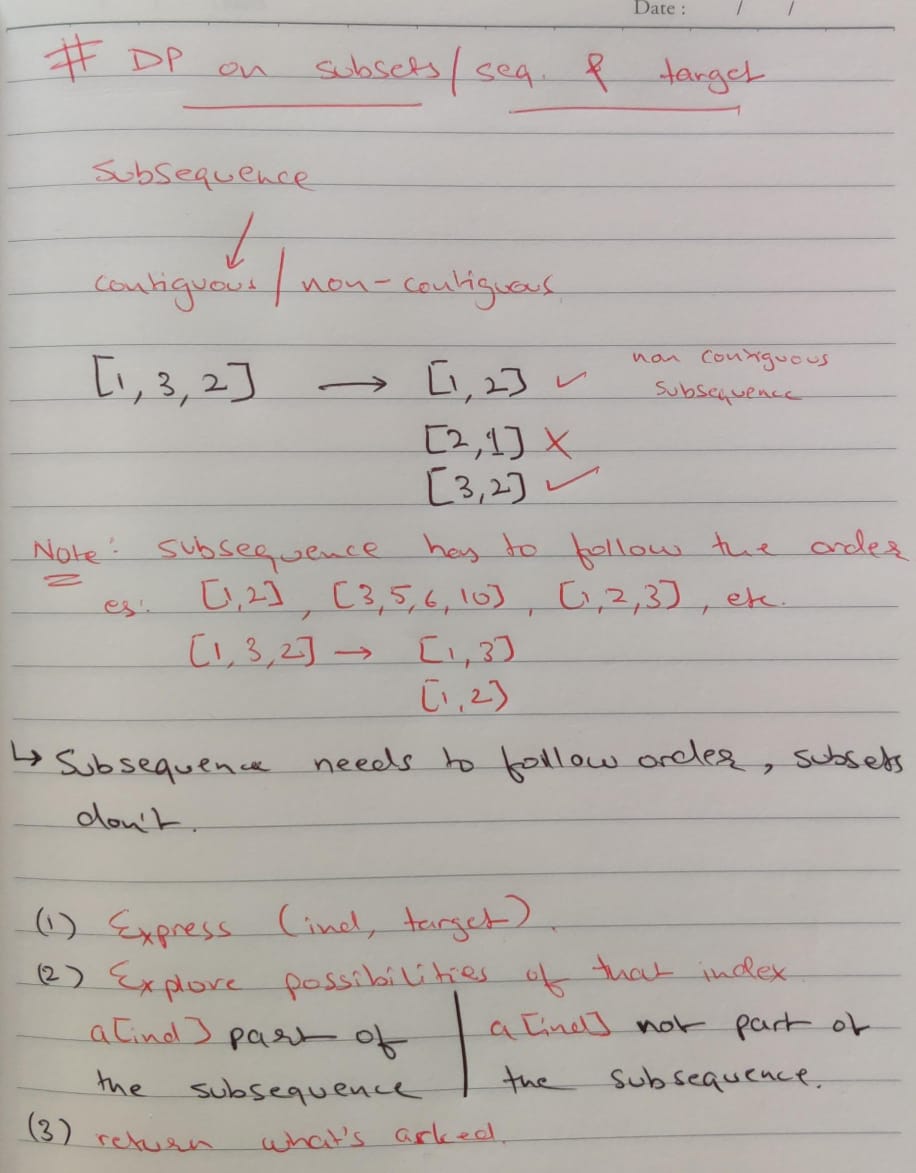 Date : / /
# DP on subsets/seq. & target
Subsequence
contiguous / non-contiguous
[1, 3, 2] → [1, 2] ✓ non contiguous
subsequence
[2, 1] ✗
[3, 2] ✓
Note: subsequence has to follow the order
eg: [1,2], [3,5,6,10], [1,2,3], etc.
[1, 3, 2] → [1, 3]
[1, 2]
↳ Subsequence needs to follow order, subsets
don't.
(1) Express (ind, target).
(2) Explore possibilities of that index
a[ind] part of | a[ind] not part of
the subsequence | the subsequence.
(3) return what's asked.